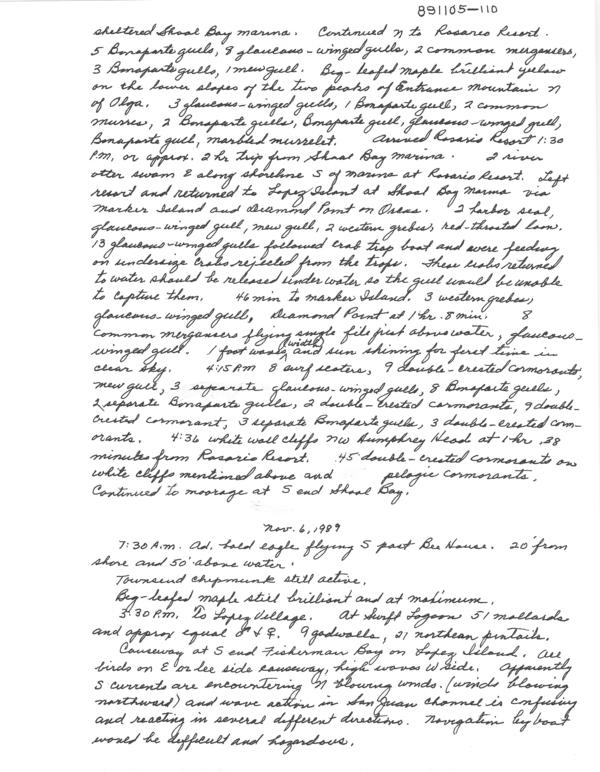 891105-110
sheltered Shoal Bay marina. Continued N to Rosario Resort.
5 Bonaparte gulls, 8 glaucous-winged gulls, 2 common mergansers,
3 Bonaparte gulls, 1 mew gull. Big-leafed maple brilliant yellow
on the lower slopes of the two peaks of Entrance Mountain N
of Olga. 3 glaucous-winged gulls, 1 Bonaparte gull, 2 common
murres, 2 Bonaparte gulls, Bonaparte gull, glaucous-winged gull,
Bonaparte gull, marbled murrelet. Arrived Rosario Resort 1:30
P.M. or approx. 2 hr trip from Shoal Bay marina. 2 river
otter swam E along shoreline S of marina at Rosario Resort. Left
resort and returned to Lopez Island at Shoal Bay Marina via
Marker Island and Diamond Point on Orcas. 2 harbor seal,
glaucous-winged gull, mew gull, 2 western grebes, red-throated loon.
13 glaucous-winged gulls followed crab trap boat and were feeding
on undersize crabs rejected from the traps. These crabs returned
to water should be released under water so the gull would be unable
to capture them. 46 min to marker Island. 3 western grebes,
glaucous-winged gull, Diamond Point at 1 hr. 8 min. 8
common mergansers flying single file just above water, glaucous-
winged gull. 1 foot waves (width) and sun shining for first time in
clear sky. 4:15 P.M. 8 surf scoters, 9 double-crested cormorants,
mew gull, 3 separate glaucous-winged gulls, 8 Bonaparte gulls,
2 separate Bonaparte gulls, 2 double-crested cormorants, 9 double-
crested cormorant, 3 separate Bonaparte gulls, 3 double-crested corm-
orants. 4:36 white wall cliffs NW Humphrey Head at 1-hr. 38
minutes from Rosario Resort. 45 double-crested cormorants on
white cliffs mentioned above and pelagic cormorants.
Continued to moorage at S end Shoal Bay.
Nov. 6, 1989
7:30 A.M. Ad. bald eagle flying S past Bee House. 20' from
shore and 50' above water.
Townsend chipmunk still active.
Big-leafed maple still brilliant and at maximum.
3:30 P.M. To Lopez Village. At Swift Lagoon 51 mallards
and approx equal ♂ & ♀. 9 gadwalls, 21 northern pintails.
Causeway at S end Fisherman Bay on Lopez Island. All
birds on E or lee side causeway, high waves W side. Apparently
S currents are encountering N blowing winds. (winds blowing
northward) and wave action in San Juan channel is confusing
and reacting in several different directions. Navigation by boat
would be difficult and hazardous.